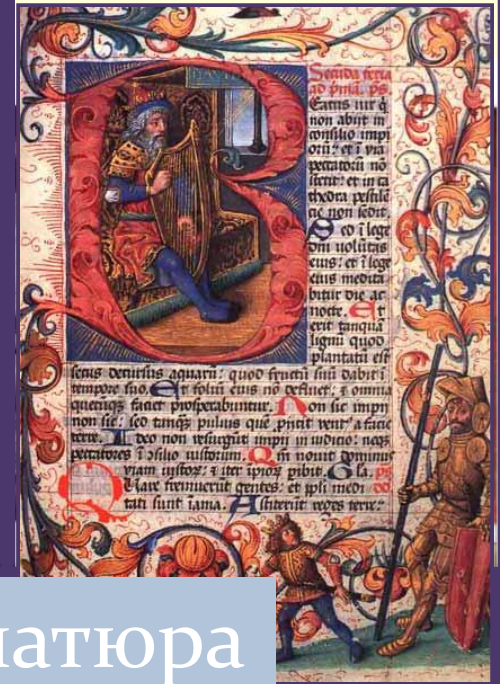 Secūda feria
ad p̄mā. ps.
Eatus uir q̄
non abijt in
consilio impi
orū: et ī via
peccatorū nō
stetit: et in ca
thedra pestilē
tie non sedit.
Sed ī lege
dm̄ uolūtas
eius: et ī lege
eius medita
bitur die ac
nocte. Et
erit tanquā
lignū quod
plantatū est
secus decursus aquarū: quod fructū suū dabit ī
tempore suo. Et foliū eius nō defluet: ⁊ omnia
quecūq̄ faciet prosperabuntur. Non sic impij
non sic: sed tanq̄ puluis quē p̄ijcit vent᷒ a facie
terre. Ideo non resurgūt impij in iudicio: neq̄
peccatores ī ɔsilio iustorum. Qm̄ nouit dominus
viam iustoꝝ: ⁊ iter ipioꝝ pibit. Gla. ps
Quare fremuerūt gentes: et ppli medi
tati sunt īania. Astiterūt reges terre:
атюра